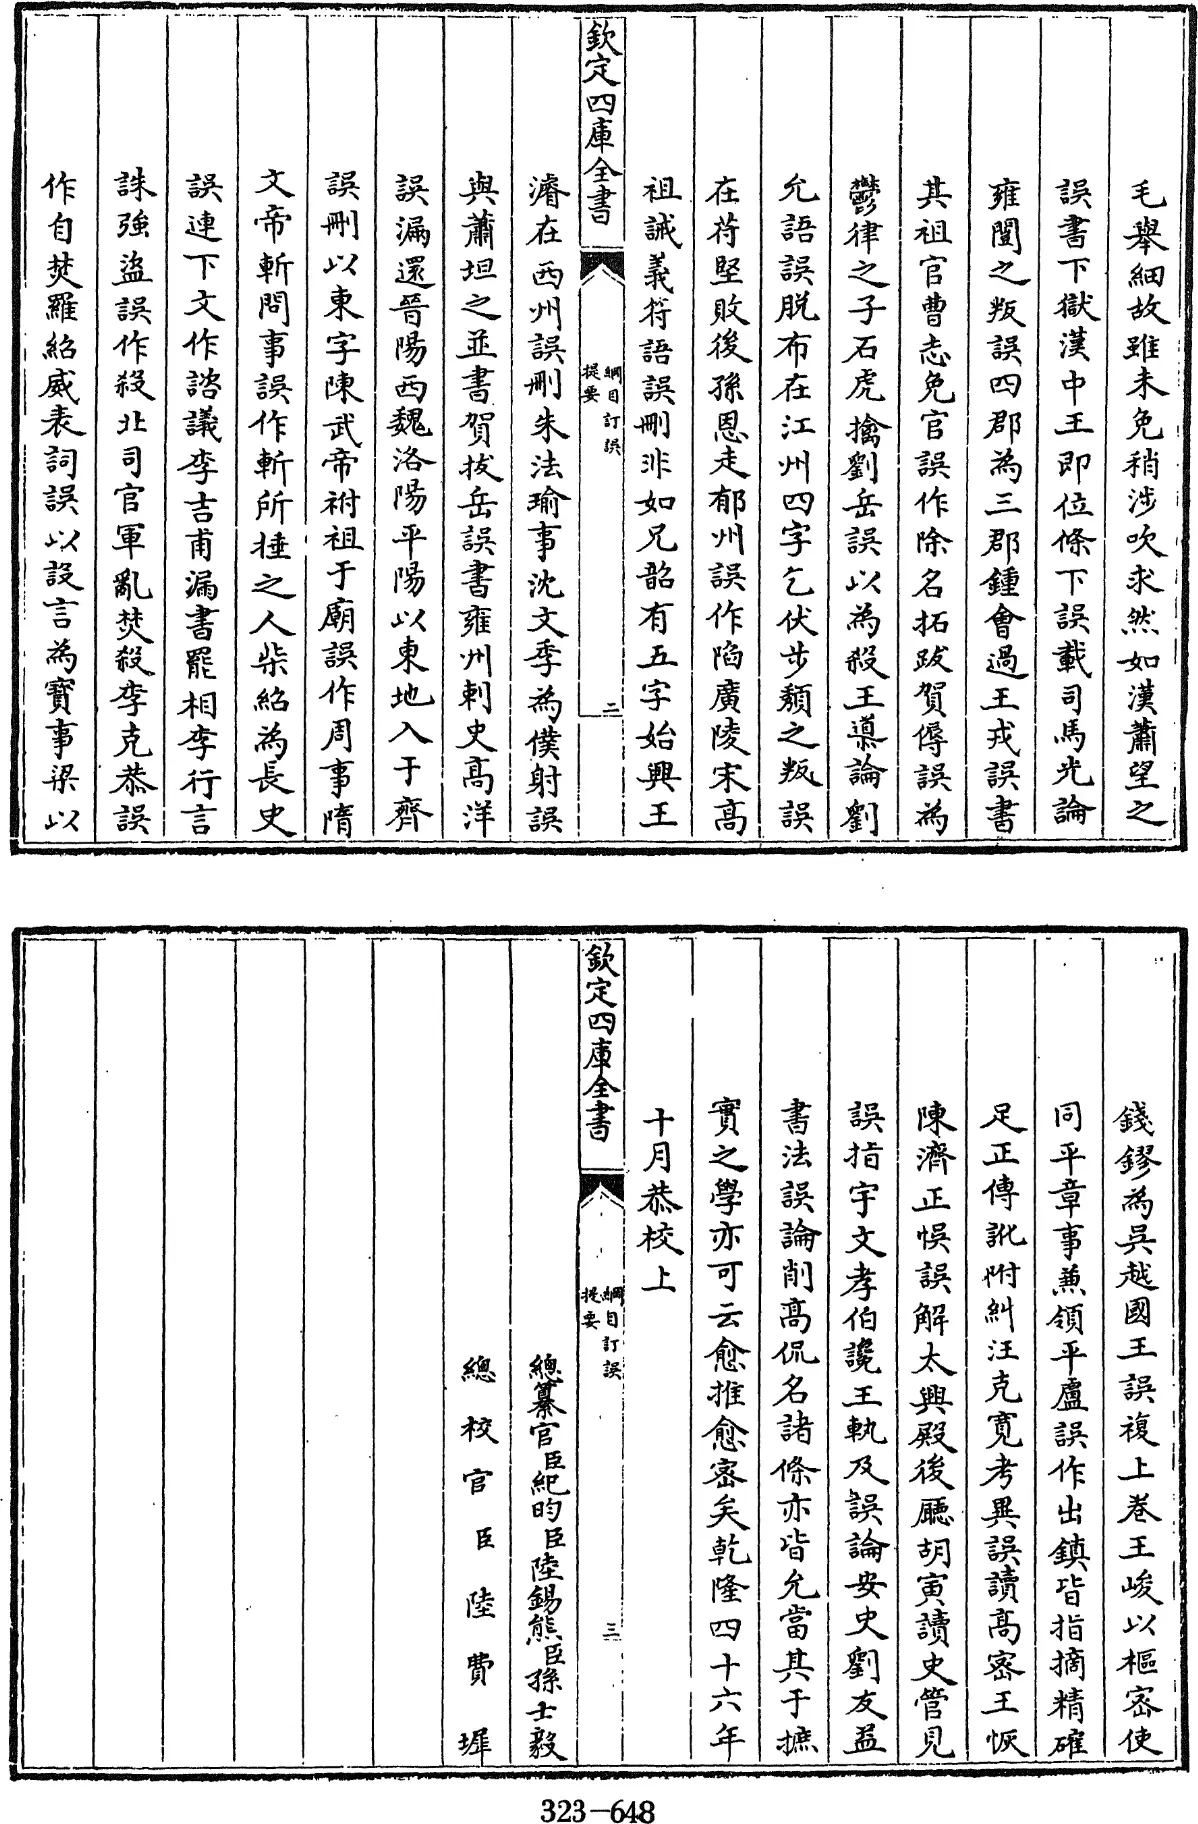 毛舉細故雖未免稍涉吹求然如漢蕭望之
誤書下獄漢中王即位條下誤載司馬光論
雍闓之叛誤四郡為三郡鍾會過王戎誤書
其祖官曹志免官誤作除名拓跋賀傉誤為
鬱律之子石虎擒劉岳誤以為殺王導論劉
允語誤脱布在江州四字乞伏步頹之叛誤
在苻堅敗後孫恩走郁州誤作陷廣陵宋高
祖誡義符語誤刪非如兄韶有五字始興王
欽定四庫全書
綱目訂誤
提要
二
濬在西州誤刪朱法瑜事沈文季為僕射誤
與蕭坦之並書賀拔岳誤書雍州刺史高洋
誤漏還晉陽西魏洛陽平陽以東地入于齊
誤刪以東字陳武帝祔祖于廟誤作周事隋
文帝斬問事誤作斬所捶之人柴紹為長史
誤連下文作諮議李吉甫漏書罷相李行言
誅強盜誤作殺北司官軍亂焚殺李克恭誤
作自焚羅紹威表詞誤以設言為實事梁以
錢鏐為吳越國王誤複上卷王峻以樞密使
同平章事兼領平盧誤作出鎮皆指摘精確
足正傳訛附糾汪克寛考異誤讀高密王恢
陳濟正悞誤解太興殿後廳胡寅讀史管見
誤指宇文孝伯讒王軌及誤論安史劉友益
書法誤論削高侃名諸條亦皆允當其于摭
實之學亦可云愈推愈密矣乾隆四十六年
十月恭校上
欽定四庫全書
綱目訂誤
提要
三
總纂官臣紀昀臣陸錫熊臣孫士毅
總校官臣陸費墀
323-648